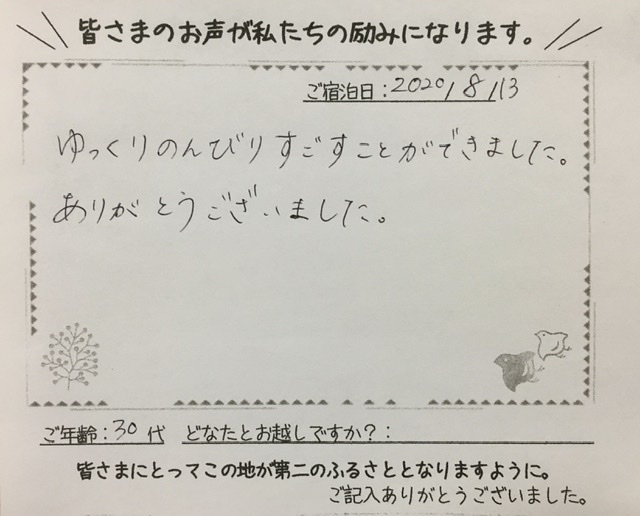 皆さまのお声が私たちの励みになります。
ご宿泊日：2020/8/13
ゆっくりのんびりすごすことができました。
ありがとうございました。
ご年齢：30代 どなたとお越しですか？：
皆さまにとってこの地が第二のふるさととなりますように。
ご記入ありがとうございました。